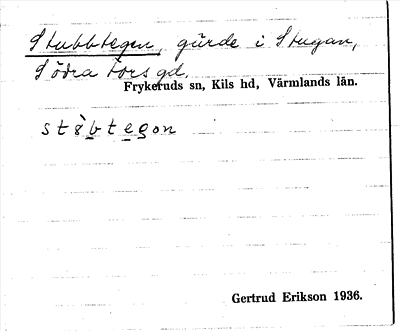 Stubbtegen, gärde i Stugan,
Södra Tors gd.
Frykeruds sn, Kils hd, Värmlands län.
st8̀btegon
Gertrud Erikson 1936.